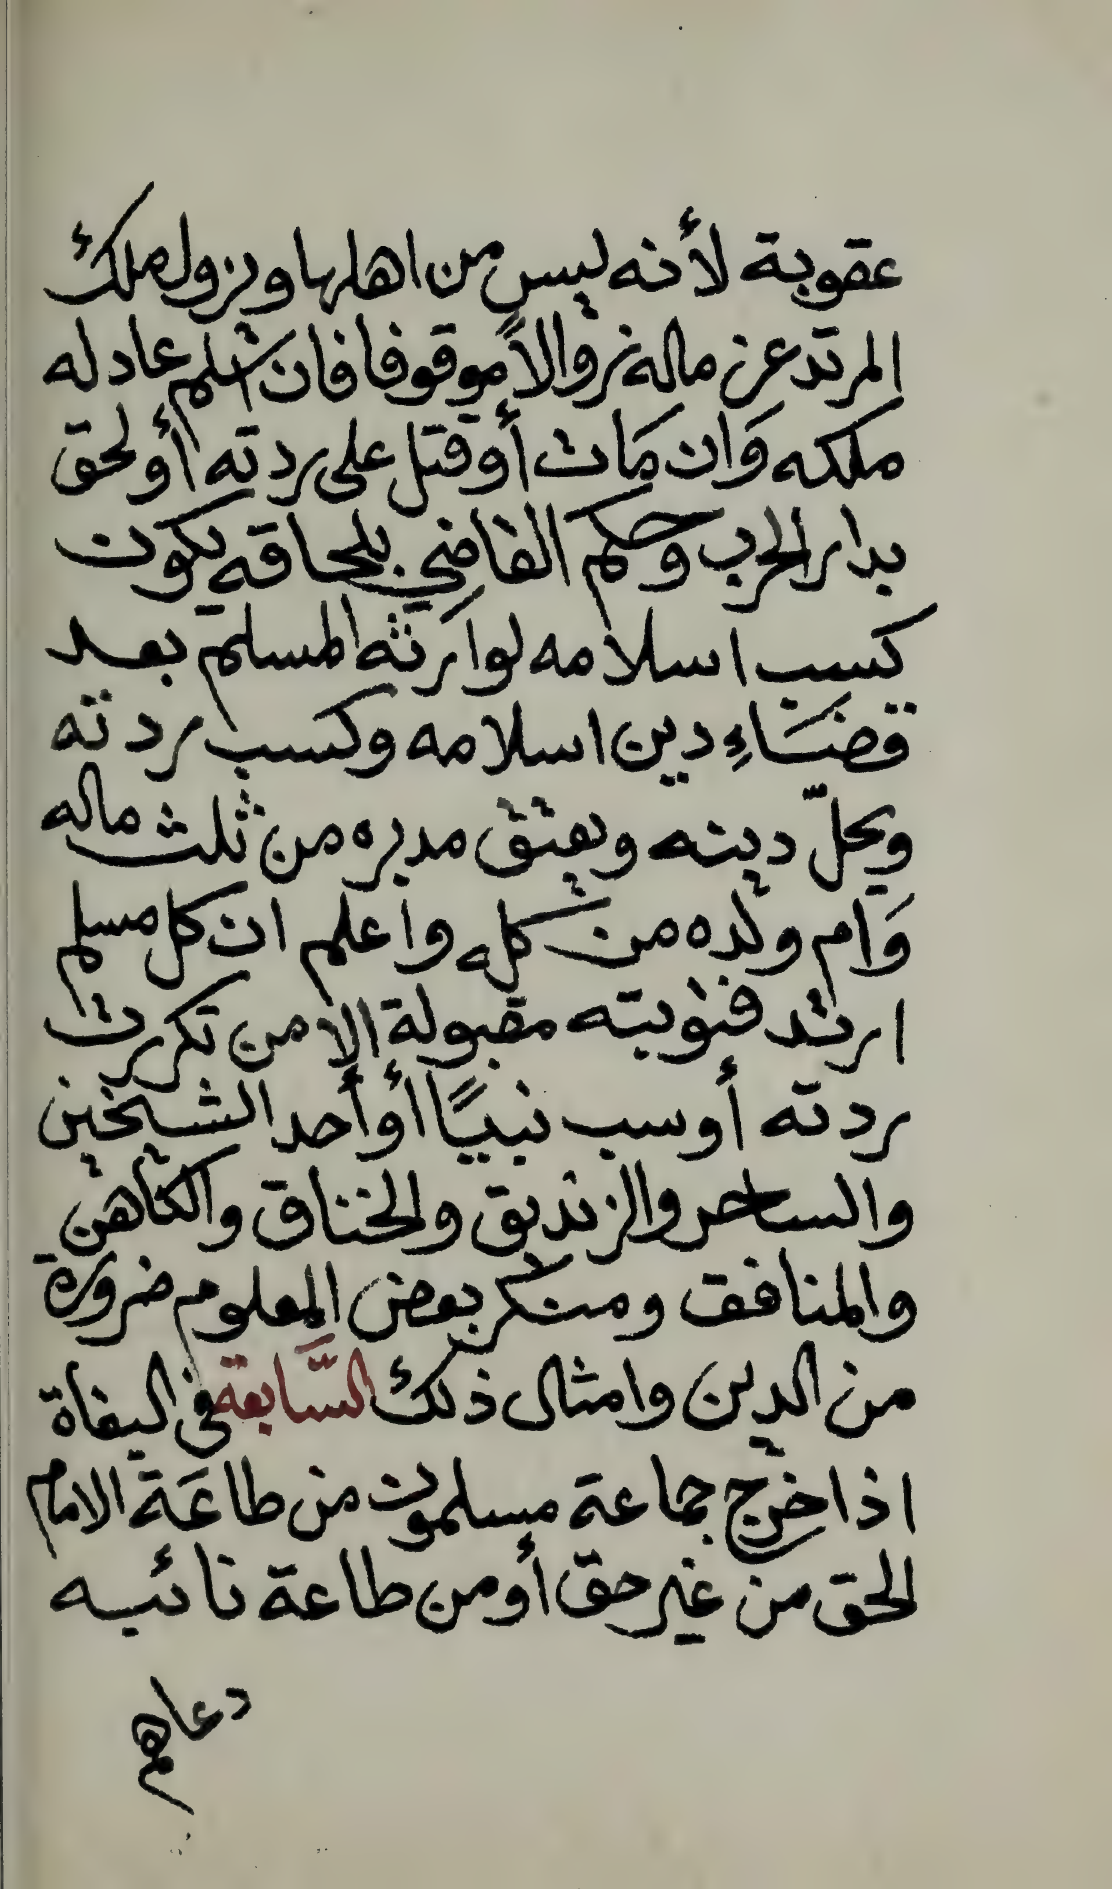 عقوبة لأنه ليس من اهلها ويزول ملك
المرتد عن ماله زوالاً موقوفا فان اسلم عاد له
ملكه وَان مَات أو قتل على ردته أو لحق
بدار الحرب وحكم القاضي بلحاقه يكون
كسب اسلامه لوارثه المسلم بعد
قضَاءِ دين اسلامه وكسب ردته
ويحلّ دينه ويعتق مدبره من ثلث ماله
وَام ولده من كله واعلم ان كل مسلم
ارتد فتوبته مقبولة الا من تكررت
ردته أو سب نبيًا أو أحد الشيخين
والساحر والزنديق والخناق والكاهن
والمنافق ومنكر بعض المعلوم ضرورة
من الدين وامثال ذلك السَّابعة في البغاة
اذا خرج جماعة مسلمون من طاعَة الامام
الحق من غير حق أو من طاعة نائبه
دعاهم